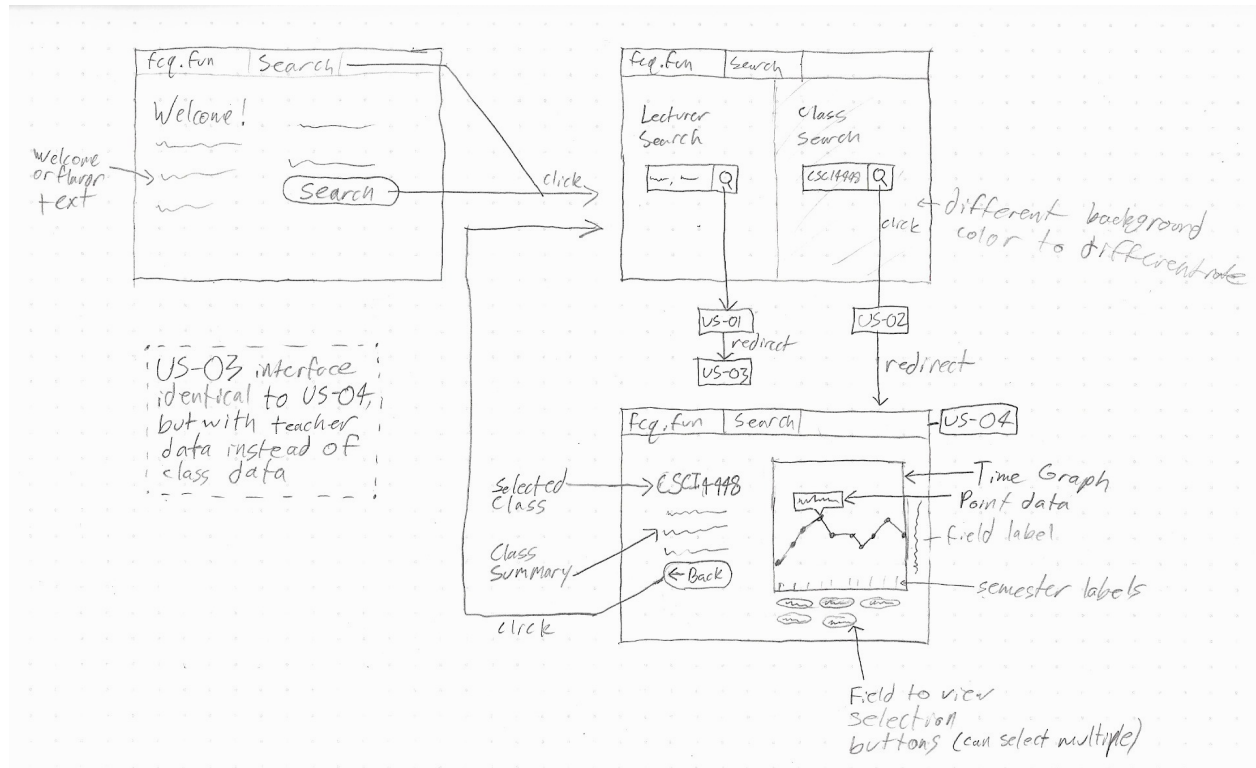 fcq.fun Search
Welcome!
Search
Welcome
or flavor
text
click
fcq.fun Search
Lecturer
Search
Class
Search
CSCI4448
click
different background
color to differentate
US-01
redirect
US-03
US-02
redirect
US-03 interface
identical to US-04,
but with teacher
data instead of
class data
fcq.fun Search
US-04
Selected
Class
CSCI4448
Class
Summary
← Back
click
Time Graph
Point data
field label
semester labels
Field to view
selection
buttons (can select multiple)